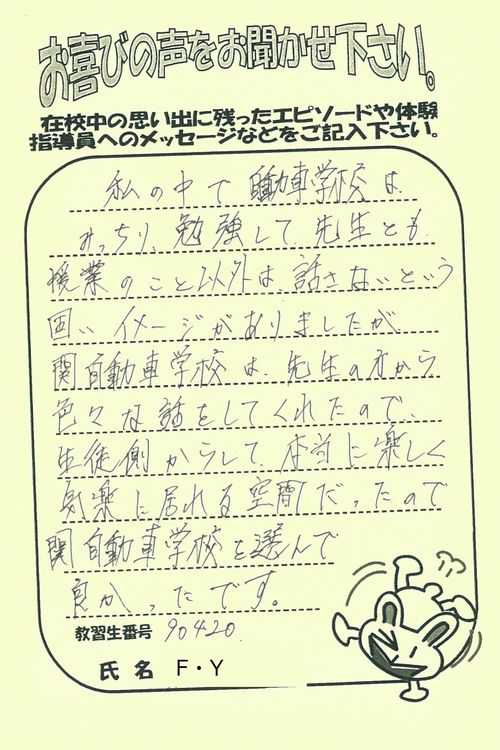 お喜びの声をお聞かせ下さい。
在校中の思い出に残ったエピソードや体験
指導員へのメッセージなどをご記入下さい。
私の中で自動車学校は
みっちり、勉強して、先生とも
授業のこと以外は、話さないという
固いイメージがありましたが
関自動車学校は、先生の方から
色々な話をしてくれたので、
生徒側からして、本当に楽しく
気楽に居れる空間だったので
関自動車学校を選んで
良かったです。
教習生番号 90420.
氏名 F・Y